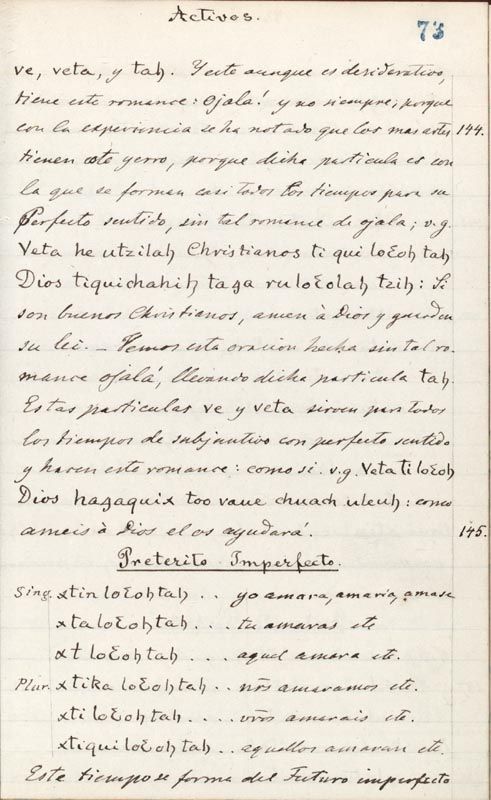 Activos.
73
ve, veta, y taꜧ. Y este aunque es desiderativo,
tiene este romance: ojala! y no siempre, porque
con la experiencia se ha notado que los mas artes 144.
tienen este yerro, porque dicha particula es con
la que se forman casi todos los tiempos para su
Perfecto sentido, sin tal romance de ojala; v.g.
Veta he utzilaꜧ Christianos ti qui loꜫoꜧ taꜧ
Dios tiquichahiꜧ taꜫa ruloꜫolaꜧ tziꜧ: Si
son buenos Christianos, amen à Dios y guarden
su lei. _ Vemos esta oracion hecha sin tal ro-
mance ojalá, llevando dicha particula taꜧ.
Estas particulas ve y veta sirven para todos
los tiempos de subjuntivo con perfecto sentido
y hacen este romance: como si. v.g. Veta ti loꜫoꜧ
Dios haꜫaquix too vaue chuach uleuꜧ: como
ameis à Dios el os ayudará. 145.
Preterito Imperfecto.
Sing. xtin loꜫoꜧ taꜧ . . yo amara, amaria, amase
xta loꜫoꜧ taꜧ . . . tu amaras etc
xt loꜫoꜧ taꜧ . . . aquel amara etc.
Plur. xtika loꜫoꜧ taꜧ . . nŏs amaramos etc.
xti loꜫoꜧ taꜧ . . . vŏs amarais etc.
xtiqui loꜫoꜧ taꜧ . . aquellos amaran etc.
Este tiempo se forma del Futuro imperfecto